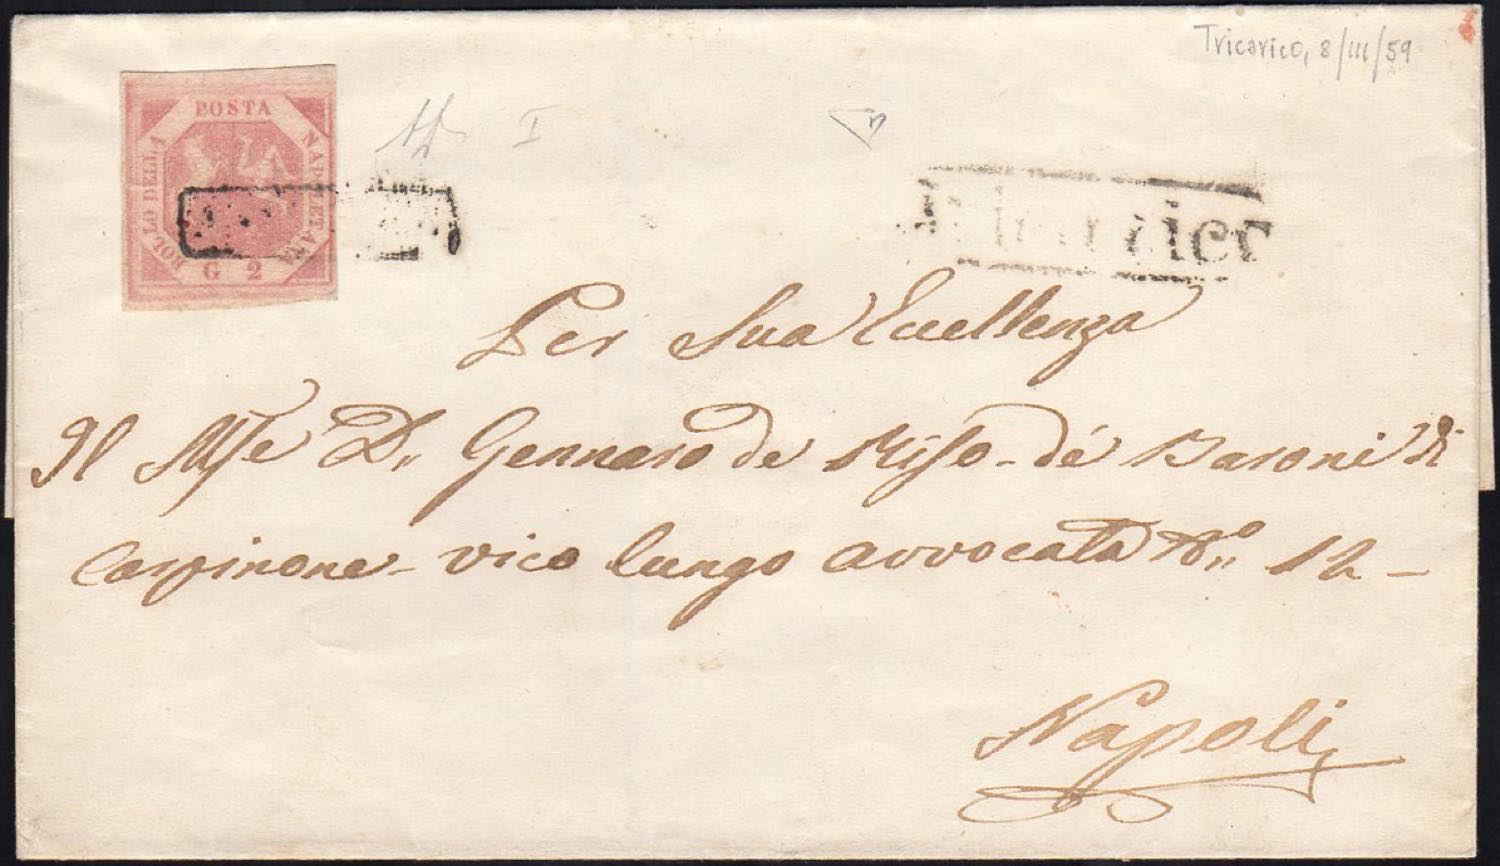 Tricarico, 8/III/59
BOLLO DELLA POSTA NAPOLETANA
G 2
I
Per Sua Eccellenza
Il Mse D,, Gennaro de Riso dé Baroni di
Carpinone - vico lungo avvocata No,, 12 -
Napoli